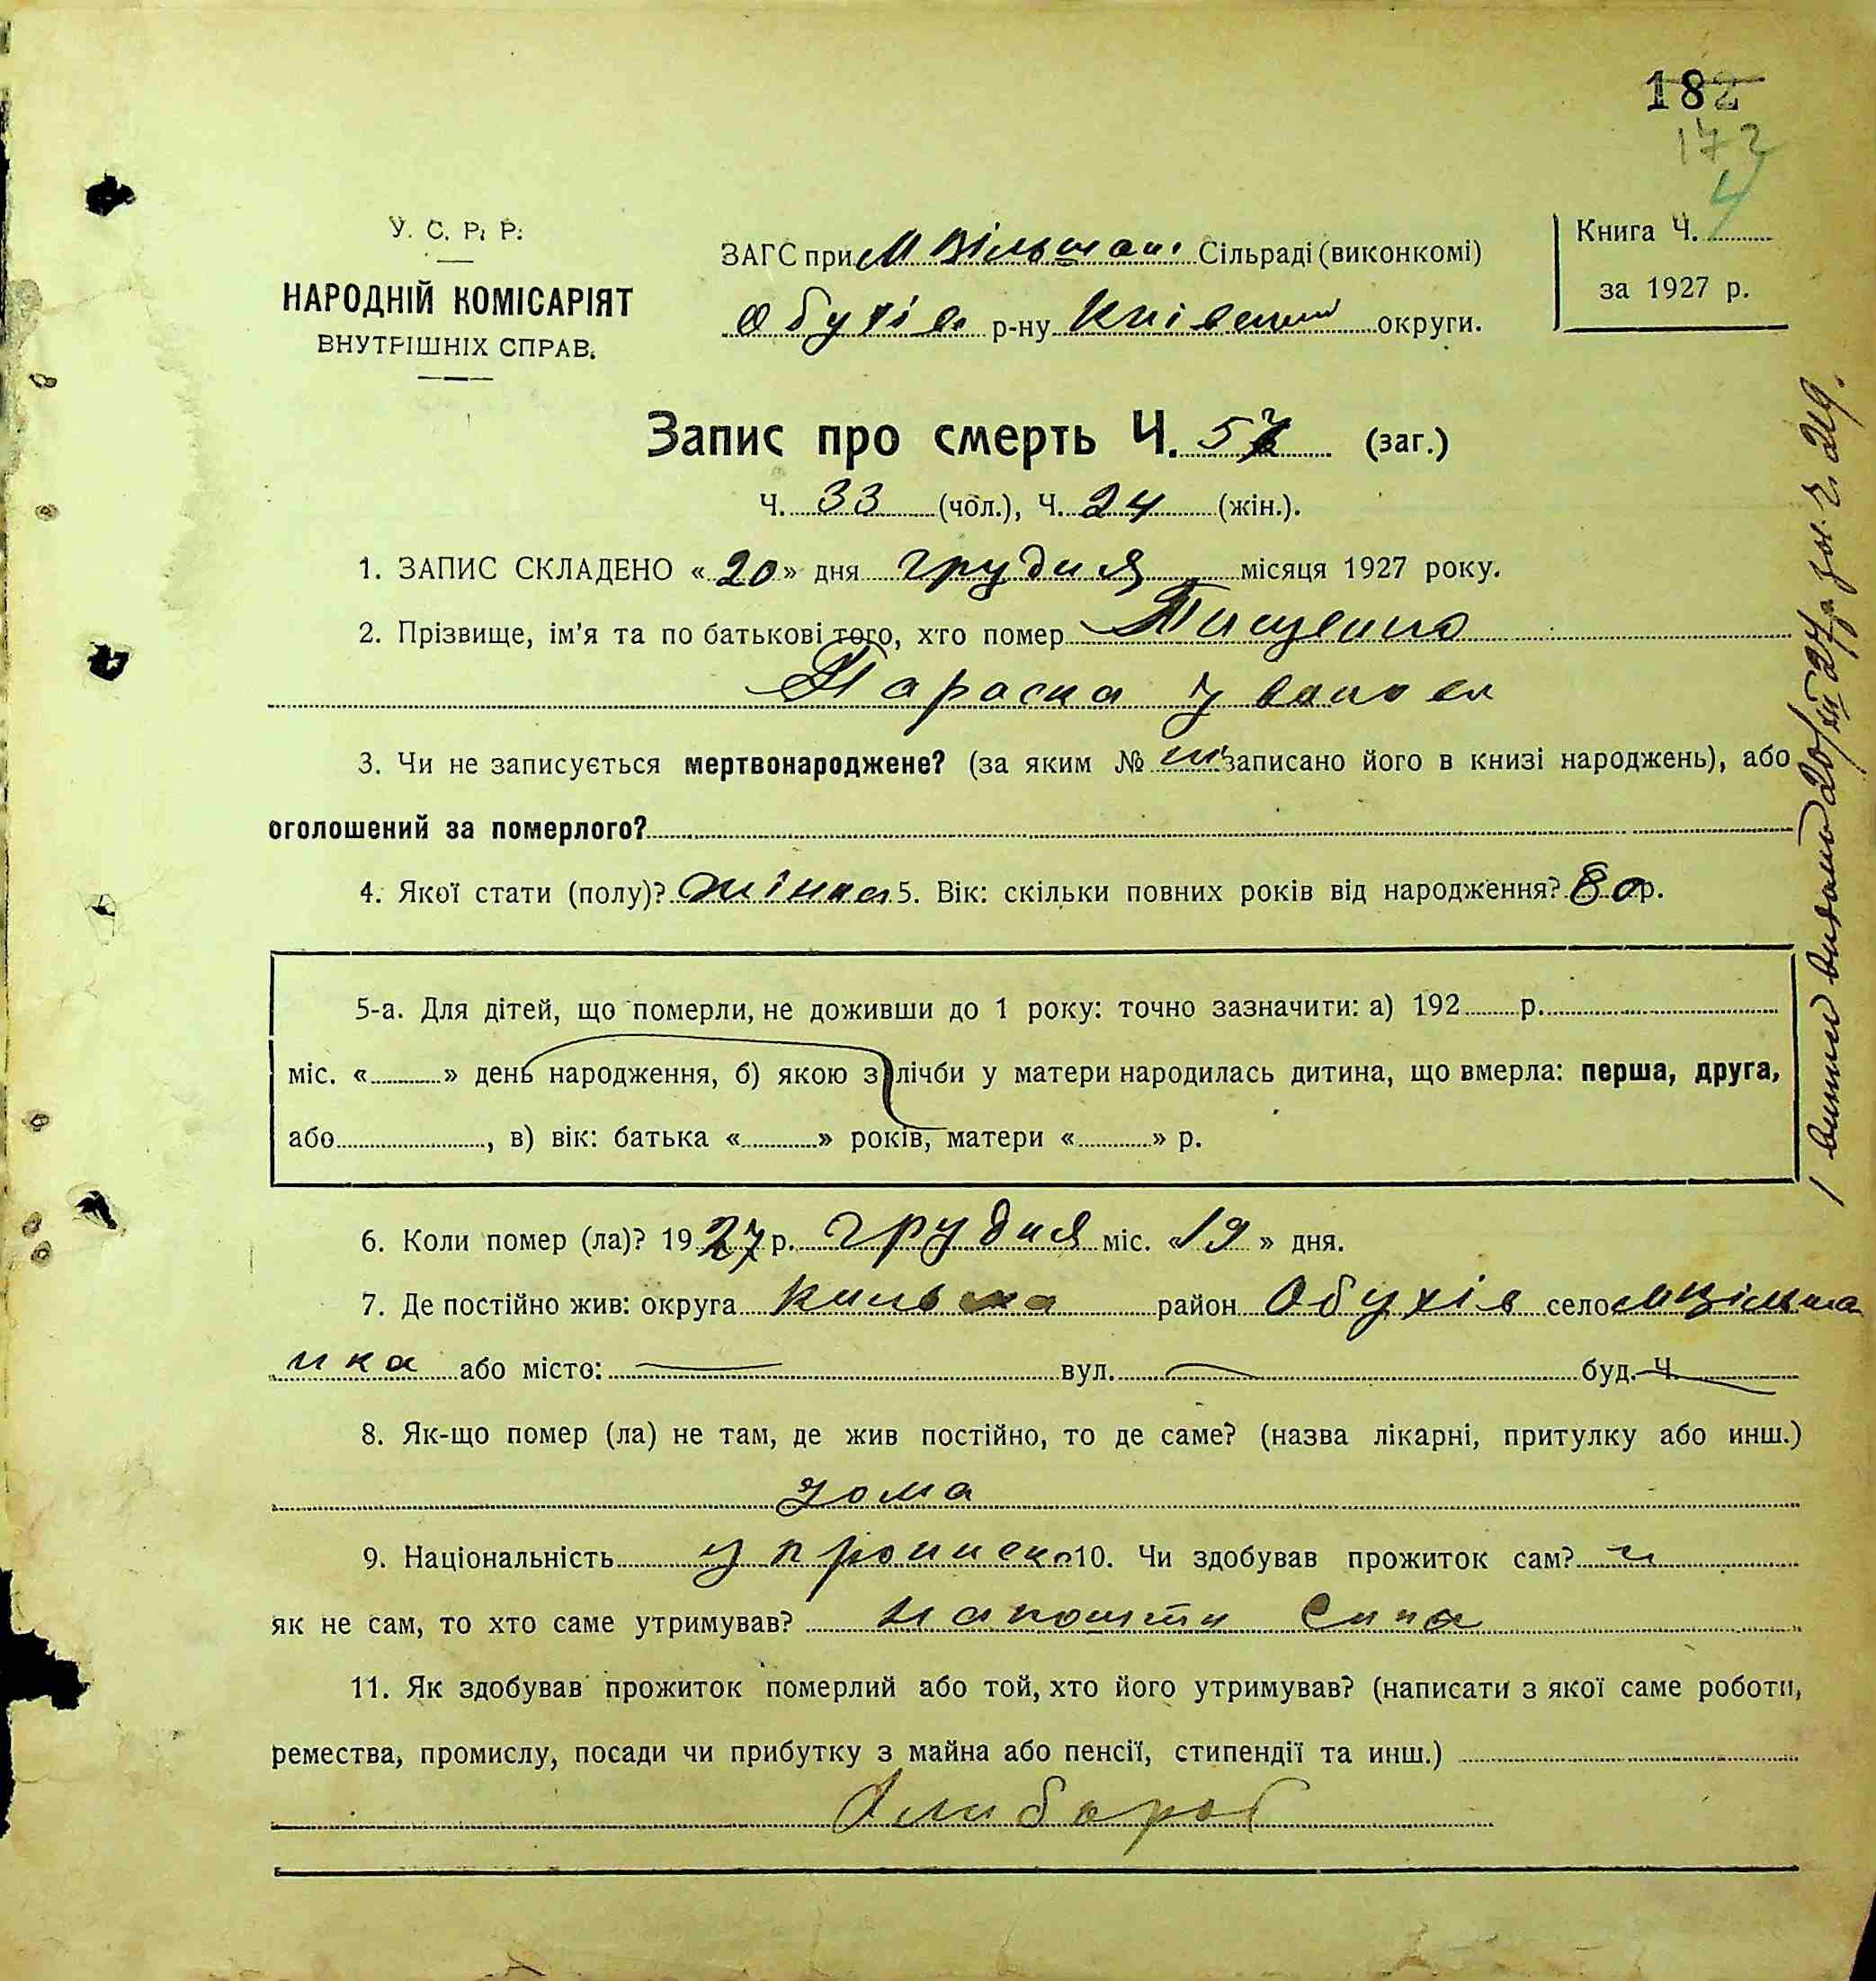 182
172
4
У. С. Р. Р.
НАРОДНІЙ КОМІСАРІЯТ
ВНУТРІШНІХ СПРАВ.
ЗАГС при М Вільшан. Сільраді (виконкомі)
Обухів р-ну Київськ округи.
Книга Ч.
за 1927 р.
Запис про смерть Ч. 57 (заг.)
Ч. 33 (чол.), Ч. 24 (жін.).
1. ЗАПИС СКЛАДЕНО « 20 » дня грудня місяця 1927 року.
2. Прізвище, ім'я та по батькові того, хто помер Тищенко
Параска
3. Чи не записується мертвонароджене? (за яким № ні записано його в книзі народжень), або
оголошений за померлого?
4. Якої стати (полу)? жінка 5. Вік: скільки повних років від народження? 80 р.
5-а. Для дітей, що померли, не доживши до 1 року: точно зазначити: а) 192 р.
міс. « » день народження, б) якою з лічби у матери народилась дитина, що вмерла: перша, друга,
або , в) вік: батька « » років, матери « » р.
6. Коли помер (ла)? 19 27 р. грудня міс. « 19 » дня.
7. Де постійно жив: округа район Обухів село М Вільша
нка або місто: вул. буд. Ч.
8. Як-що помер (ла) не там, де жив постійно, то де саме? (назва лікарні, притулку або инш.)
дома
9. Національність українска 10. Чи здобував прожиток сам? н
як не сам, то хто саме утримував? на кошти сина
11. Як здобував прожиток померлий або той, хто його утримував? (написати з якої саме роботи,
ремества, промислу, посади чи прибутку з майна або пенсії, стипендії та инш.)
Хлибороб
20/XII 27 р.